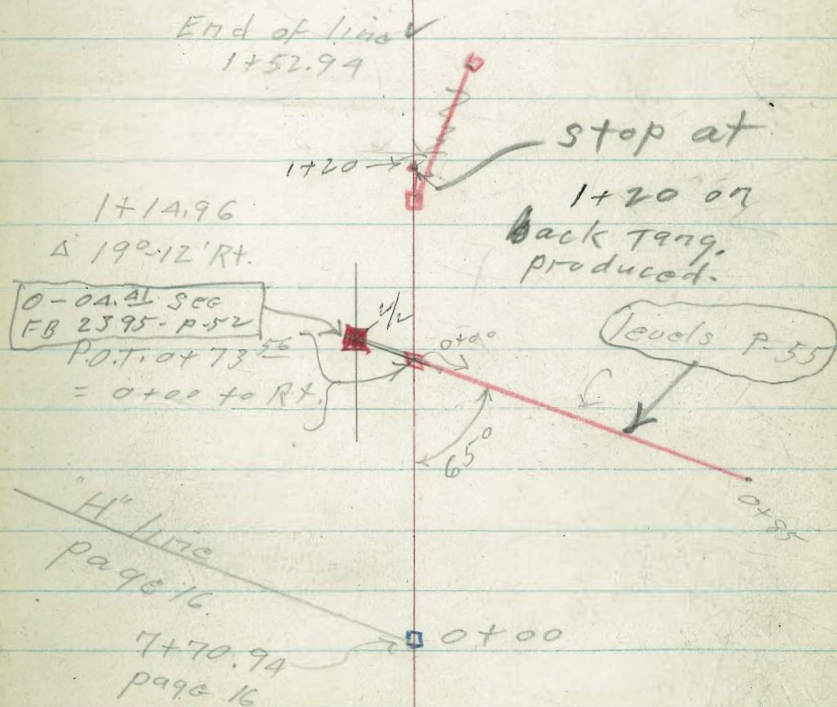 End of line
1+52.94
stop at
1+20
1+20 on
back Tang.
produced.
1+14.96
Δ 19°-12' Rt.
0-04.41 See
FB 2395-P-52
P.O.T. 0+73.56
= 0+00 to Rt.
0+00
levels P-55
65°
0+85
"H" line
page 16
0+00
7+70.94
page 16